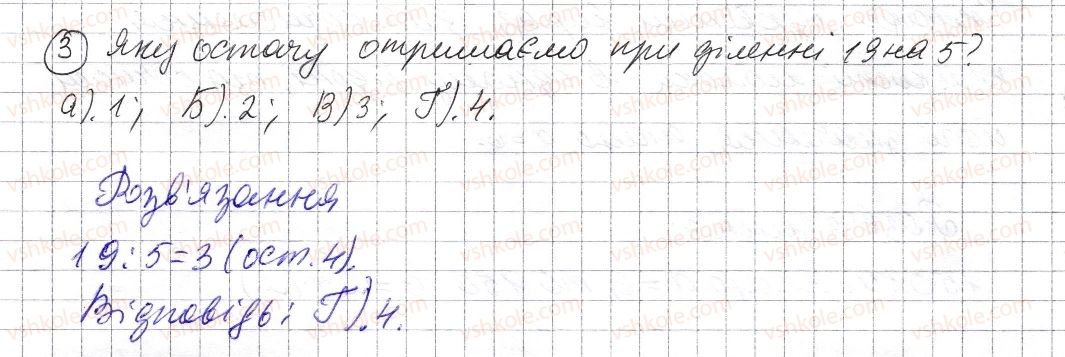 3 Яку остачу отримаємо при діленні 19 на 5?
а). 1; Б). 2; В) 3; Г). 4.
Розв'язання
19 : 5 = 3 (ост. 4).
Відповідь: Г). 4.